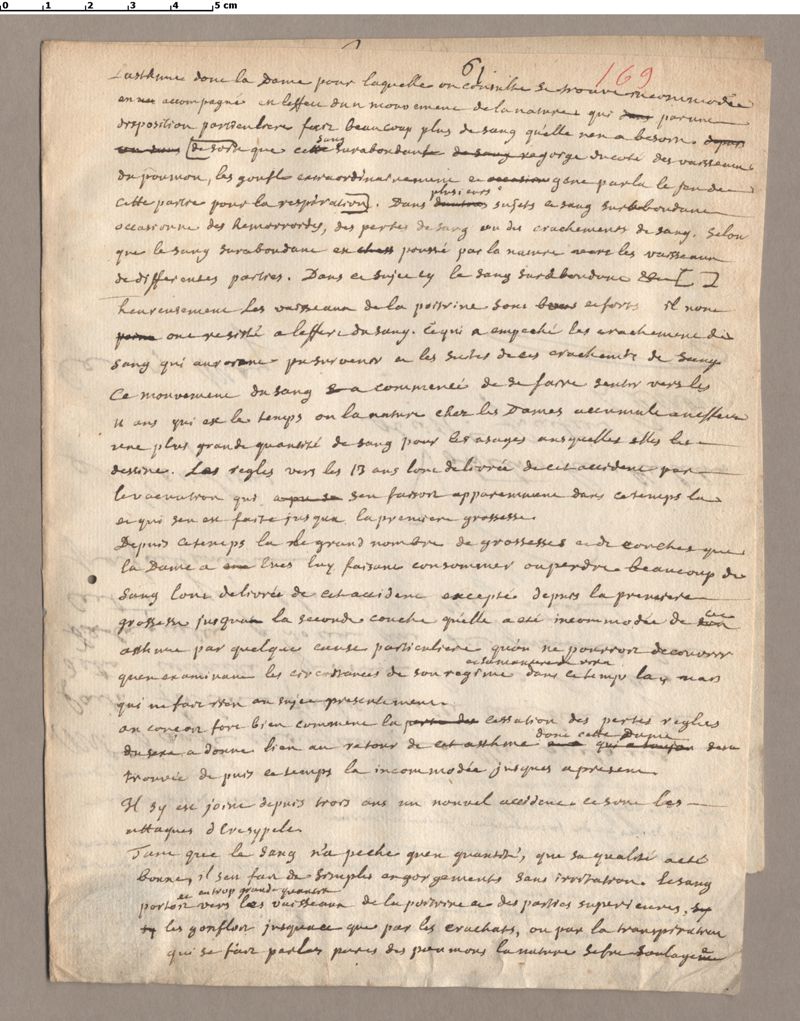 0 1 2 3 4 5 cm
61 169
L'asthme dont la Dame pour laquelle on consulte se trouve incommodée
accompagné est l'effet d'un mouvement de la nature qui dans par une
disposition particuliere fait beaucoup plus de sang quelle nen a besoin depuis
[de sorte que cette sang surabondant de sang regorge du coté des vaisseaux
du poumon, les gonfle extraordinairement et occasion gene par la le jeu de
cette partie pour la respiration]. Dans d'autres plusieurs sujets ce sang surabondant
occasionne des hemorroides, des pertes de sang ou des crachements de sang. Selon
que le sang surabondant est chess poussé par la nature vers les vaisseaux
de differentes parties. Dans ce sujet cy le sang surabondant [ ]
heureusement les vaisseaux de la poitrine sont bons et forts il n'ont
point ont resisté a leffort du sang. Ce qui a empeché les crachement de
sang qui auroient pu survenir et les suites de ces crachemts de sang
Ce mouvement du sang s a commencé de se faire sentir vers les
11 ans qui est le temps ou la nature chez les Dames accumule en effet
une plus grande quantité de sang pour les usages ausquelles elles les
destine. Les regles vers les 13 ans l'ont delivrée de cet accident par
levacuation qui a pu se sen faisoit apparemment dans ce temps la
et qui sen est faite jusqua la premiere grossesse.
Depuis ce temps la le grand nombre de grossesses et de couches que
la Dame a eu lues luy faisant consommer ou perdre beaucoup de
sang l'ont delivrée de cet accident excepté depuis la premiere
grossesse jusqua la seconde couche quelle a eté incommodée de son cet
asthme par quelque cause particuliere quon ne pourroit decouvrir
quen examinant les circonstances de son regime et sa maniere de vivre dans ce temps la, mais
qui ne fait rien au sujet presentement.
on conçoit fort bien comment la perte des cessation des pertes regles
du sexe a donné lieu au retour de cet asthme dont cette Dame qui a toujou sest
trouvée depuis ce temps la incommodée jusques apresent.
Il sy est joint depuis trois ans un nouvel accident ce sont les
attaques d'Eresypele.
Tant que le sang n'a peché quen quantité, que sa qualité a eté
bonne, il sen fait de simples engorgements sans irritation. le sang
portoit et en trop grande quantité vers les vaisseaux de la poitrine et des parties superieures, sy
les gonfloit jusquace que par les crachats, ou par la transpiration
qui se fait par les pores des poumons la nature se fut soulagée